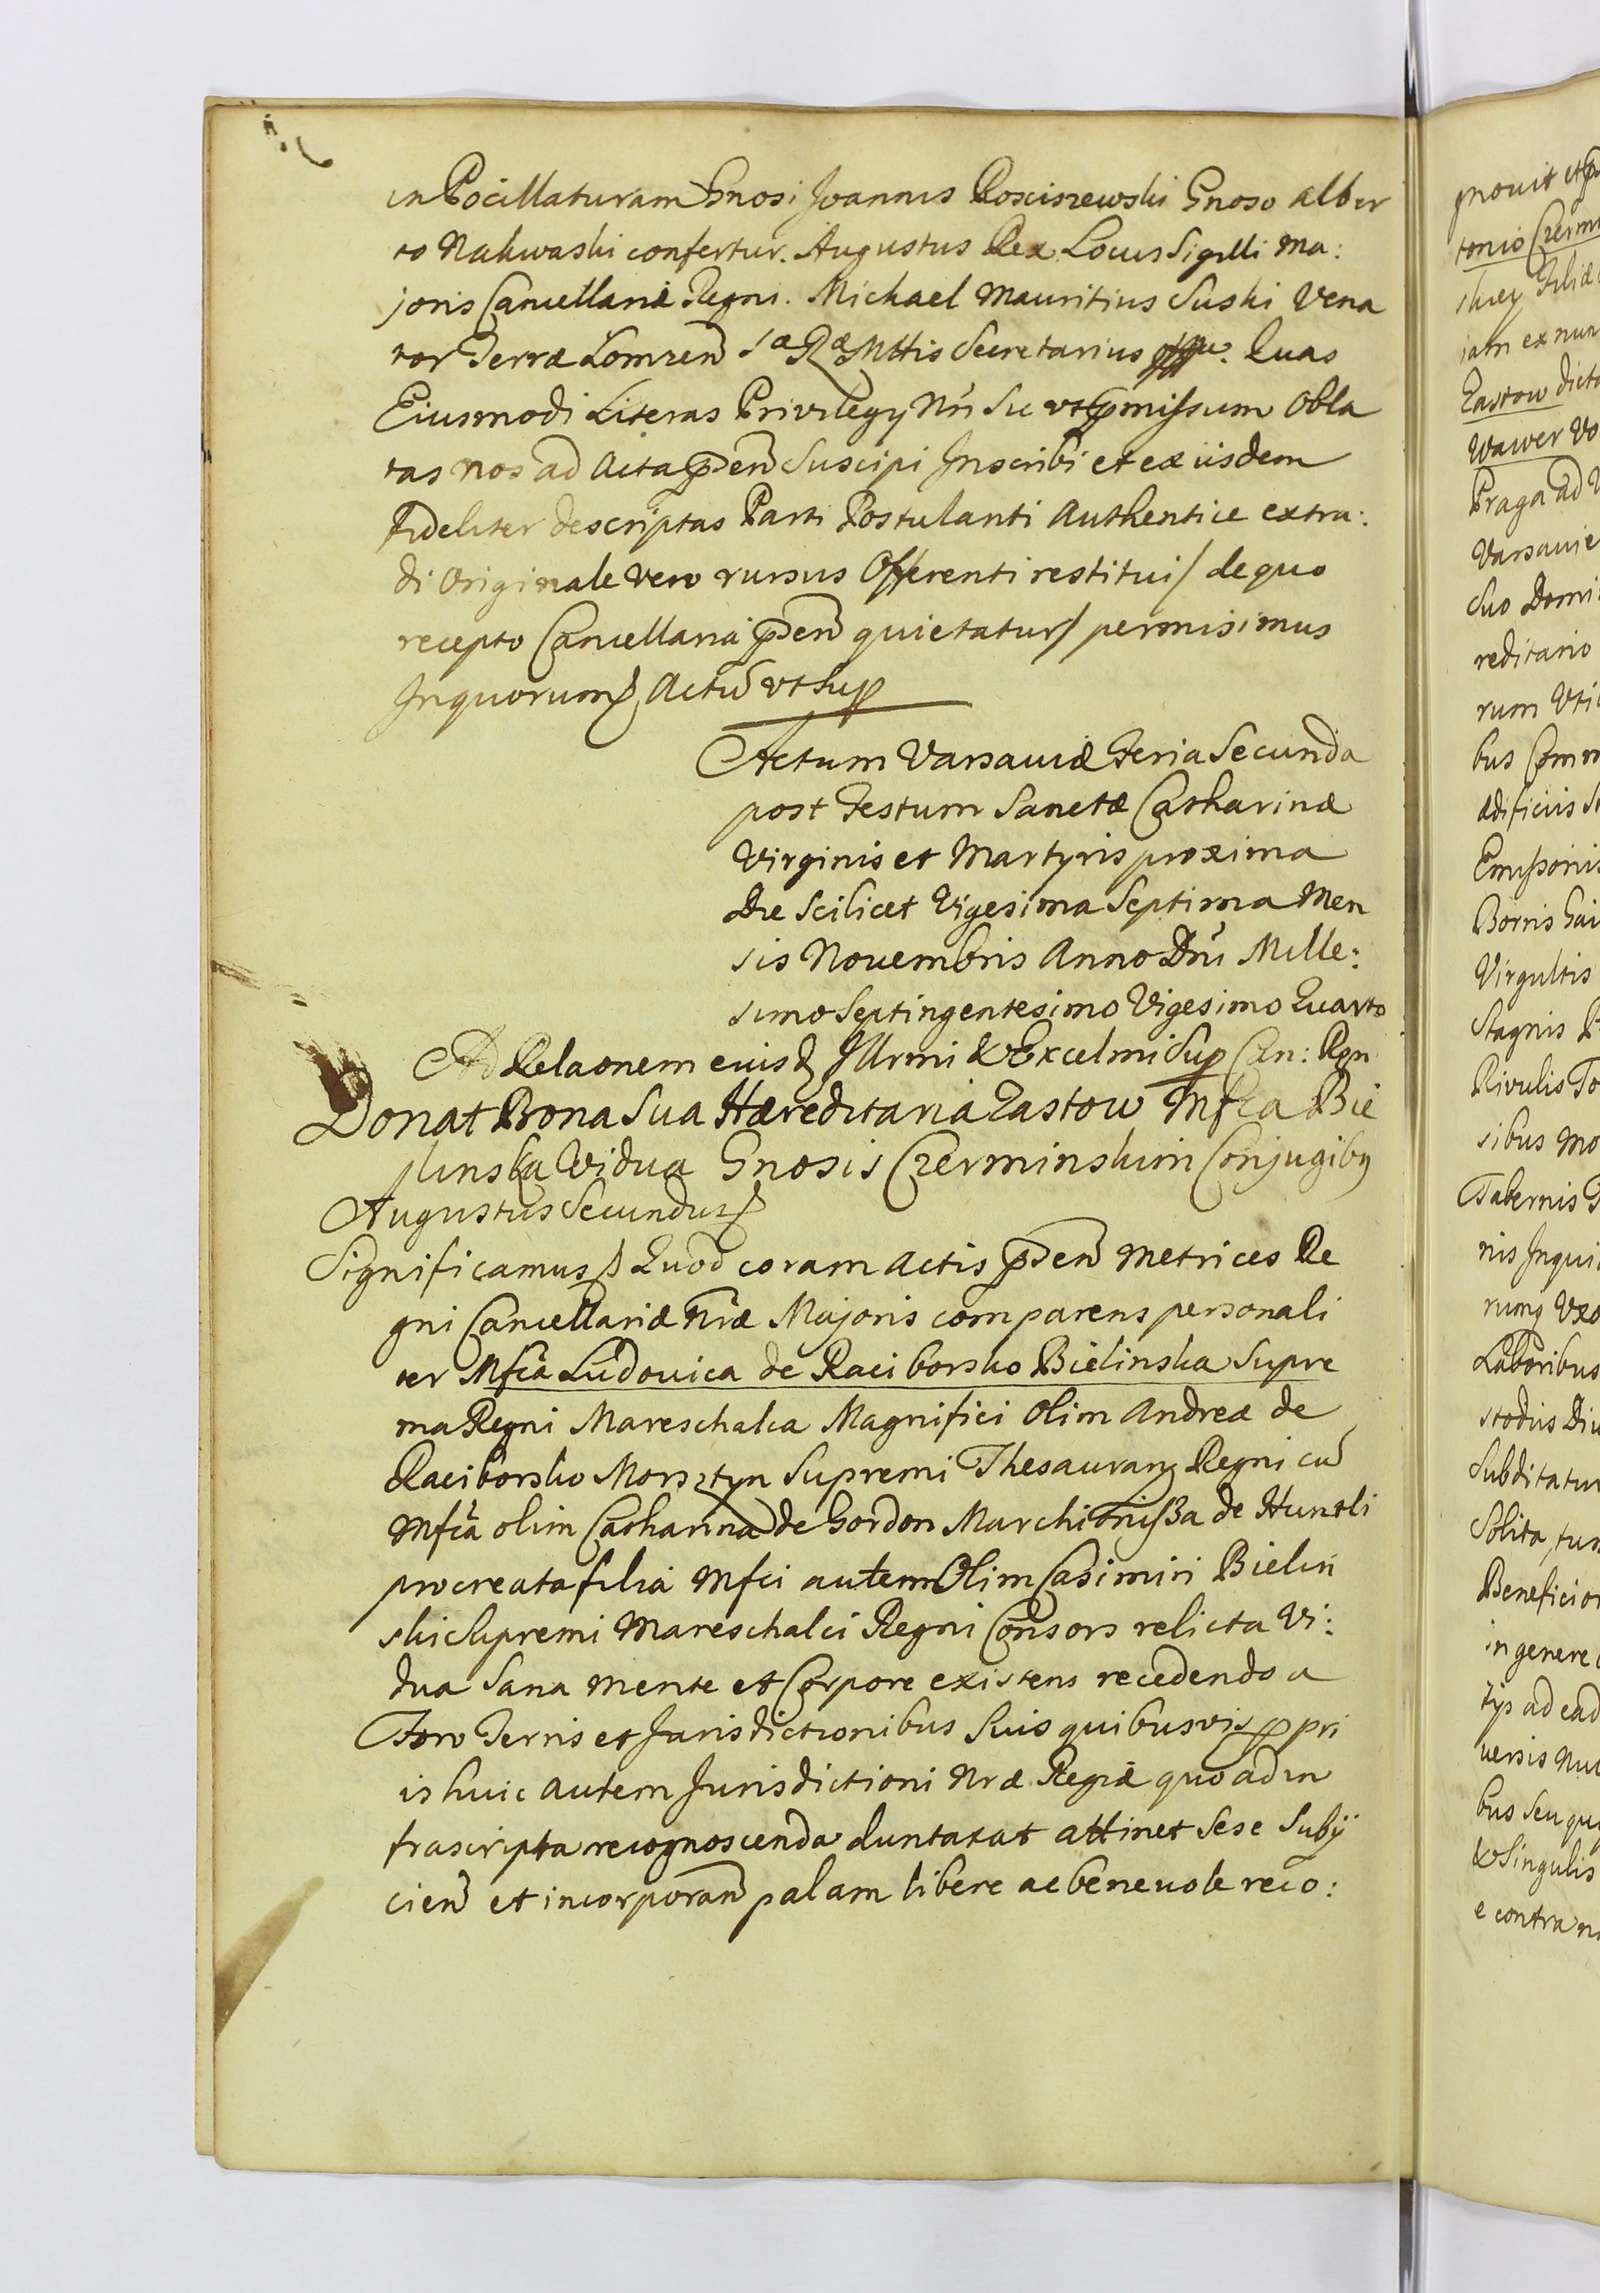 in Pocillaturam Gnosi Joannis Rosciszewski Gnoso Alber
to Nakwaski confertur. Augustus Rex Locus Sigilli Ma:
joris Cancellariæ Regni. Michael Mauritius Suski Vena
tor Terræ Lomzen Sæ Ræ Mttis Secretarius Quas
Eiusmodi Literas Privilegy Nri Sic ut pmissum Obla
tas nos ad Acta pn̄ Suscipi Inscribi et ex iisdem
fideliter descriptas Parti Postulanti Authentice extra:
di Originale vero rursus Offerenti restitui / de quo
recepto Cancellaria pn̄ quietatur / permisimus
In quorum Actū ut sup
Actum Varsaviæ Feria Secunda
post Festum Sanctæ Catharinæ
Virginis et Martyris proxima
Die Scilicet Vigesima Septima Men
sis Novembris Anno Dni Mille:
simo Septingentesimo Vigesimo Quarto
Ad Relaonem eiusd Illrmi & Excelmi Sup Can: Rgn
Donat Bona Sua Hæreditaria Zastow Mfca Bie
linska Vidua Gnosis Czerminskim Conjugibg
Augustus Secundus
Significamus Quod coram Actis pn̄ Metrices Re
gni Cancellariæ Nræ Majoris comparens personali
ter Mfca Ludovica de Raciborsko Bielinska Supre
ma Regni Mareschalca Magnifici Olim Andreæ de
Raciborsko Morsztyn Supremi Thesaurarij Regni cū
Mfca olim Catharina de Gordon Marchionissa de Huntli
procreata filia Mfci autem Olim Casimiri Bielin
ski Supremi Mareschalci Regni Consors relicta Vi:
dua Sana mente et Corpore existens recedendo a
Foro Terris et Jurisdictionibus Suis quibusvis ppri
is huic autem Jurisdictioni Nræ Regiæ quo ad in
frascripta recognoscenda duntaxat attinet Sese Subij
cien et incorporan palam libere ac benevole reco:
tonio
iam ex nunc
Zastow dicta
Wawer
Praga ad
Varsavie
Suo Domi
reditario
rum Uti
bus Comm
ædificiis
Borris Gai
Virgultis
Stagnis
Rivulis
sibus
Tabernis
nis Inqui
Laboribus
stodiis
Subditatu
Solita, tum
in genere
ijs ad ead
versis
bus seu
& Singulis
e contra